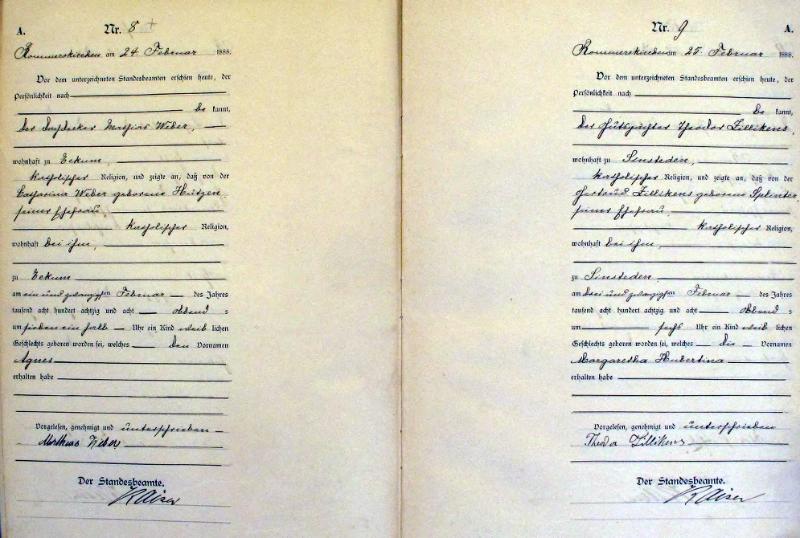 A. Nr. 8 +
Rommerskirchen am 24 Februar 1888.
Vor dem unterzeichneten Standesbeamten erschien heute, der
Persönlichkeit nach
be kannt,
der Dachdecker Mathias Weber,
wohnhaft zu Eckum,
katholischer Religion, und zeigte an, daß von der
Catharina Weber geborene Hützen
seiner Ehefrau,
katholischer Religion,
wohnhaft bei ihm,
zu Eckum
am ein und zwanzigsten Februar des Jahres
tausend acht hundert achtzig und acht abends
um sieben ein halb Uhr ein Kind weib lichen
Geschlechts geboren worden sei, welches den Vornamen
Agnes
erhalten habe
Vorgelesen, genehmigt und unterschrieben
Mathias Weber
Der Standesbeamte.
Kaiser
Nr. 9 A.
Rommerskirchen am 25. Februar 1888.
Vor dem unterzeichneten Standesbeamten erschien heute, der
Persönlichkeit nach
be kannt,
der Gutspächter Theodor Zillikens,
wohnhaft zu Sinsteden,
katholischer Religion, und zeigte an, daß von der
Gertrud Zillikens geborene Splinter
seiner Ehefrau,
katholischer Religion,
wohnhaft bei ihm,
zu Sinsteden
am drei und zwanzigsten Februar des Jahres
tausend acht hundert achtzig und acht abends
um sechs Uhr ein Kind weib lichen
Geschlechts geboren worden sei, welches die Vornamen
Margaretha Hubertina
erhalten habe
Vorgelesen, genehmigt und unterschrieben
Theodor Zillikens
Der Standesbeamte.
Kaiser